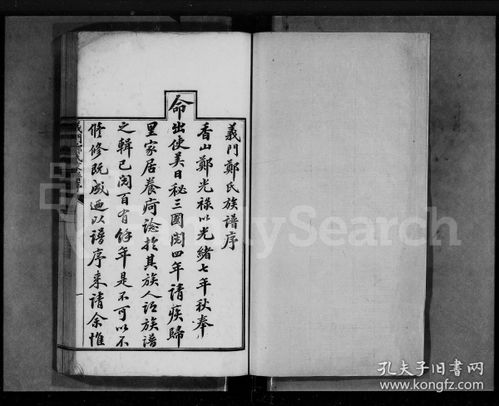 義門鄭氏族譜序
香山鄭光祿以光緒七年秋奉
命出使美日秘三國閱四年請疾歸
里家居養疴諗於其族人謂族譜
之輯已閱百有餘年是不可以不
修修既成迺以譜序來請余惟
義門鄭氏
FamilySearch
孔夫子旧书网
www.kongfz.com